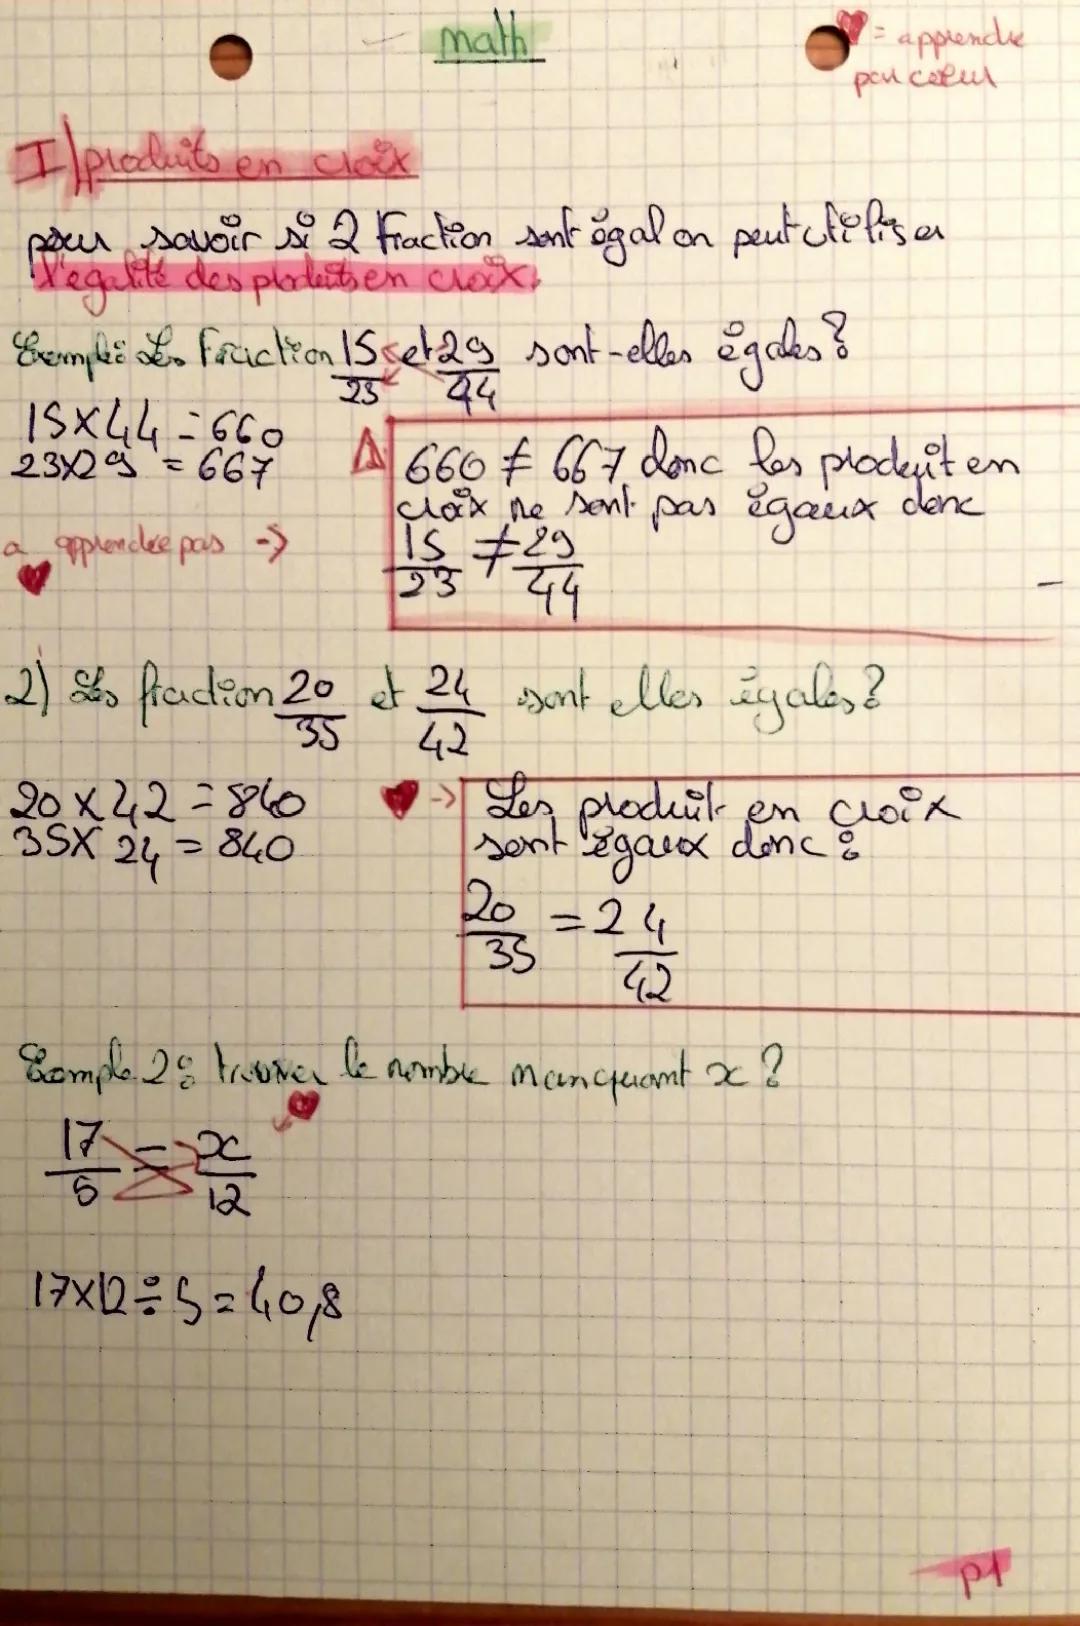 math
♥ = apprendre
par coeur
I) produits en croix
pour savoir si 2 fraction sont égal on peut utiliser
l'égalité des produits en croix.
Exemple: Les fraction 15/23 et 29/44 sont-elles égales?
15x44 = 660
23x29 = 667
660 ≠ 667 donc les produit en
croix ne sont pas égaux donc
15/23 ≠ 29/44
a apprendre pas ->
♥
2) Les fraction 20/35 et 24/42 sont elles égales?
20 x 42 = 840
35x 24 = 840
♥ -> Les produit en croix
sont égaux donc:
20/35 = 24/42
Exemple 2: trouver le nombre manquant x?
♥
17/5 = x/12
17x12÷5=40,8
p1